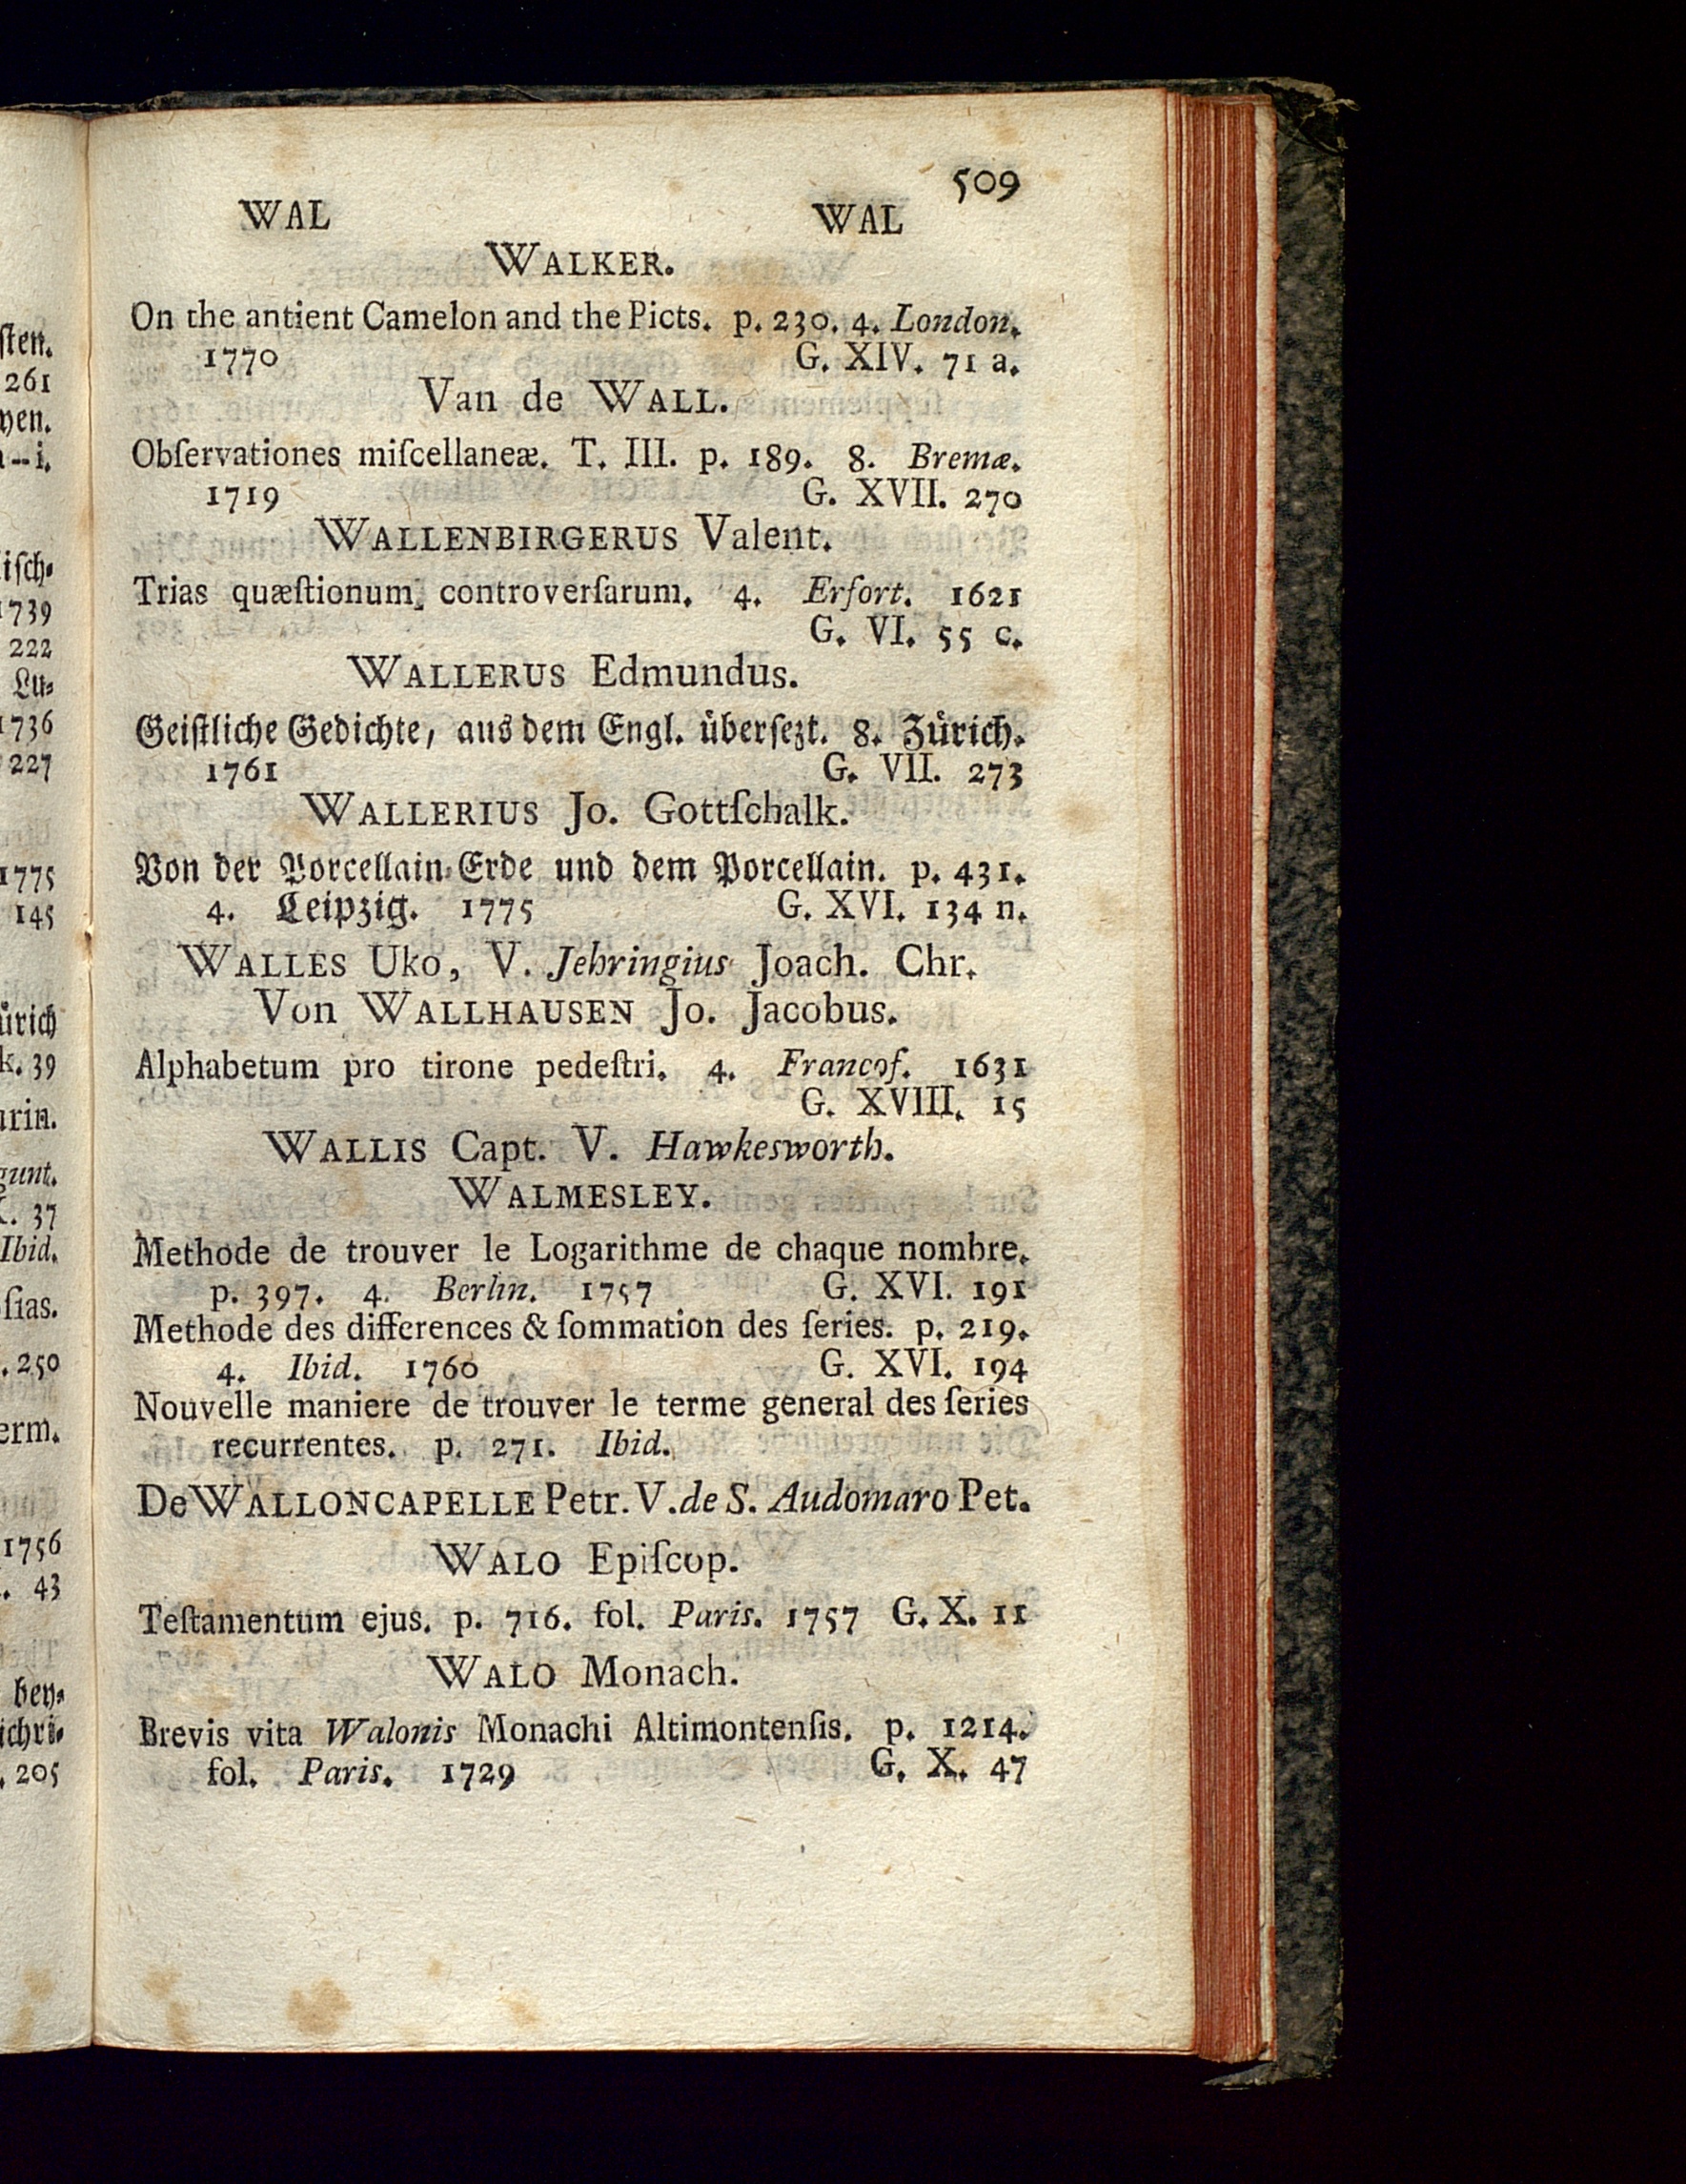 509
WAL WAL
WALKER.
On the antient Camelon and the Picts. p. 230. 4. London.
1770 G. XIV. 71 a.
Van de WALL.
Obſervationes miſcellaneæ. T. III. p. 189. 8. Bremæ.
1719 G. XVII. 270
WALLENBIRGERUS Valent.
Trias quæſtionum controverſarum. 4. Erfort. 1621
G. VI. 55 c.
WALLERUS Edmundus.
Geiſtliche Gedichte, aus dem Engl. überſezt. 8. Zürich.
1761 G. VII. 273
WALLERIUS Jo. Gottſchalk.
Von der Porcellain-Erde und dem Porcellain. p. 431.
4. Leipzig. 1775 G. XVI. 134 n.
WALLES Uko, V. Jehringius Joach. Chr.
Von WALLHAUSEN Jo. Jacobus.
Alphabetum pro tirone pedeſtri. 4. Francof. 1631
G. XVIII. 15
WALLIS Capt. V. Hawkesworth.
WALMESLEY.
Methode de trouver le Logarithme de chaque nombre.
p. 397. 4. Berlin. 1757 G. XVI. 191
Methode des differences & ſommation des ſeries. p. 219.
4. Ibid. 1760 G. XVI. 194
Nouvelle maniere de trouver le terme general des ſeries
recurrentes. p. 271. Ibid.
De WALLONCAPELLE Petr. V. de S. Audomaro Pet.
WALO Epiſcop.
Teſtamentum ejus. p. 716. fol. Paris. 1757 G. X. 11
WALO Monach.
Brevis vita Walonis Monachi Altimontenſis. p. 1214.
fol. Paris. 1729 G. X. 47